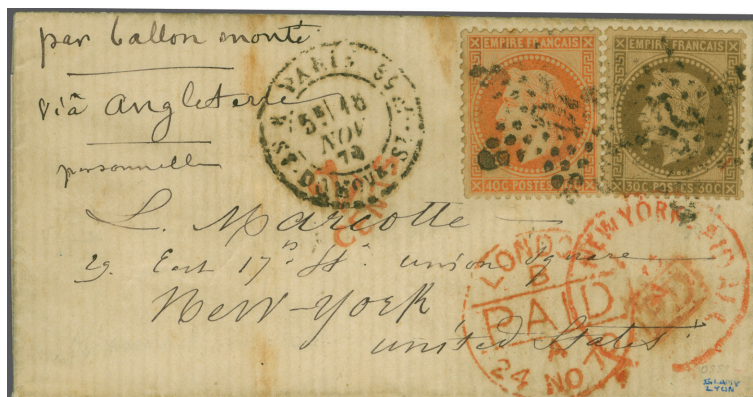 par ballon monté
viâ Angleterre
personnelle
PARIS
5E 18
NOV
70
EMPIRE FRANÇAIS
40C POSTES
EMPIRE FRANÇAIS
30C POSTES 30C
CENTS
L. Marcotte
29. East 17th St. union Square
New-York
united States.
LONDON
B
PAID
24 NO 70
NEW YORK PAID ALL
PD